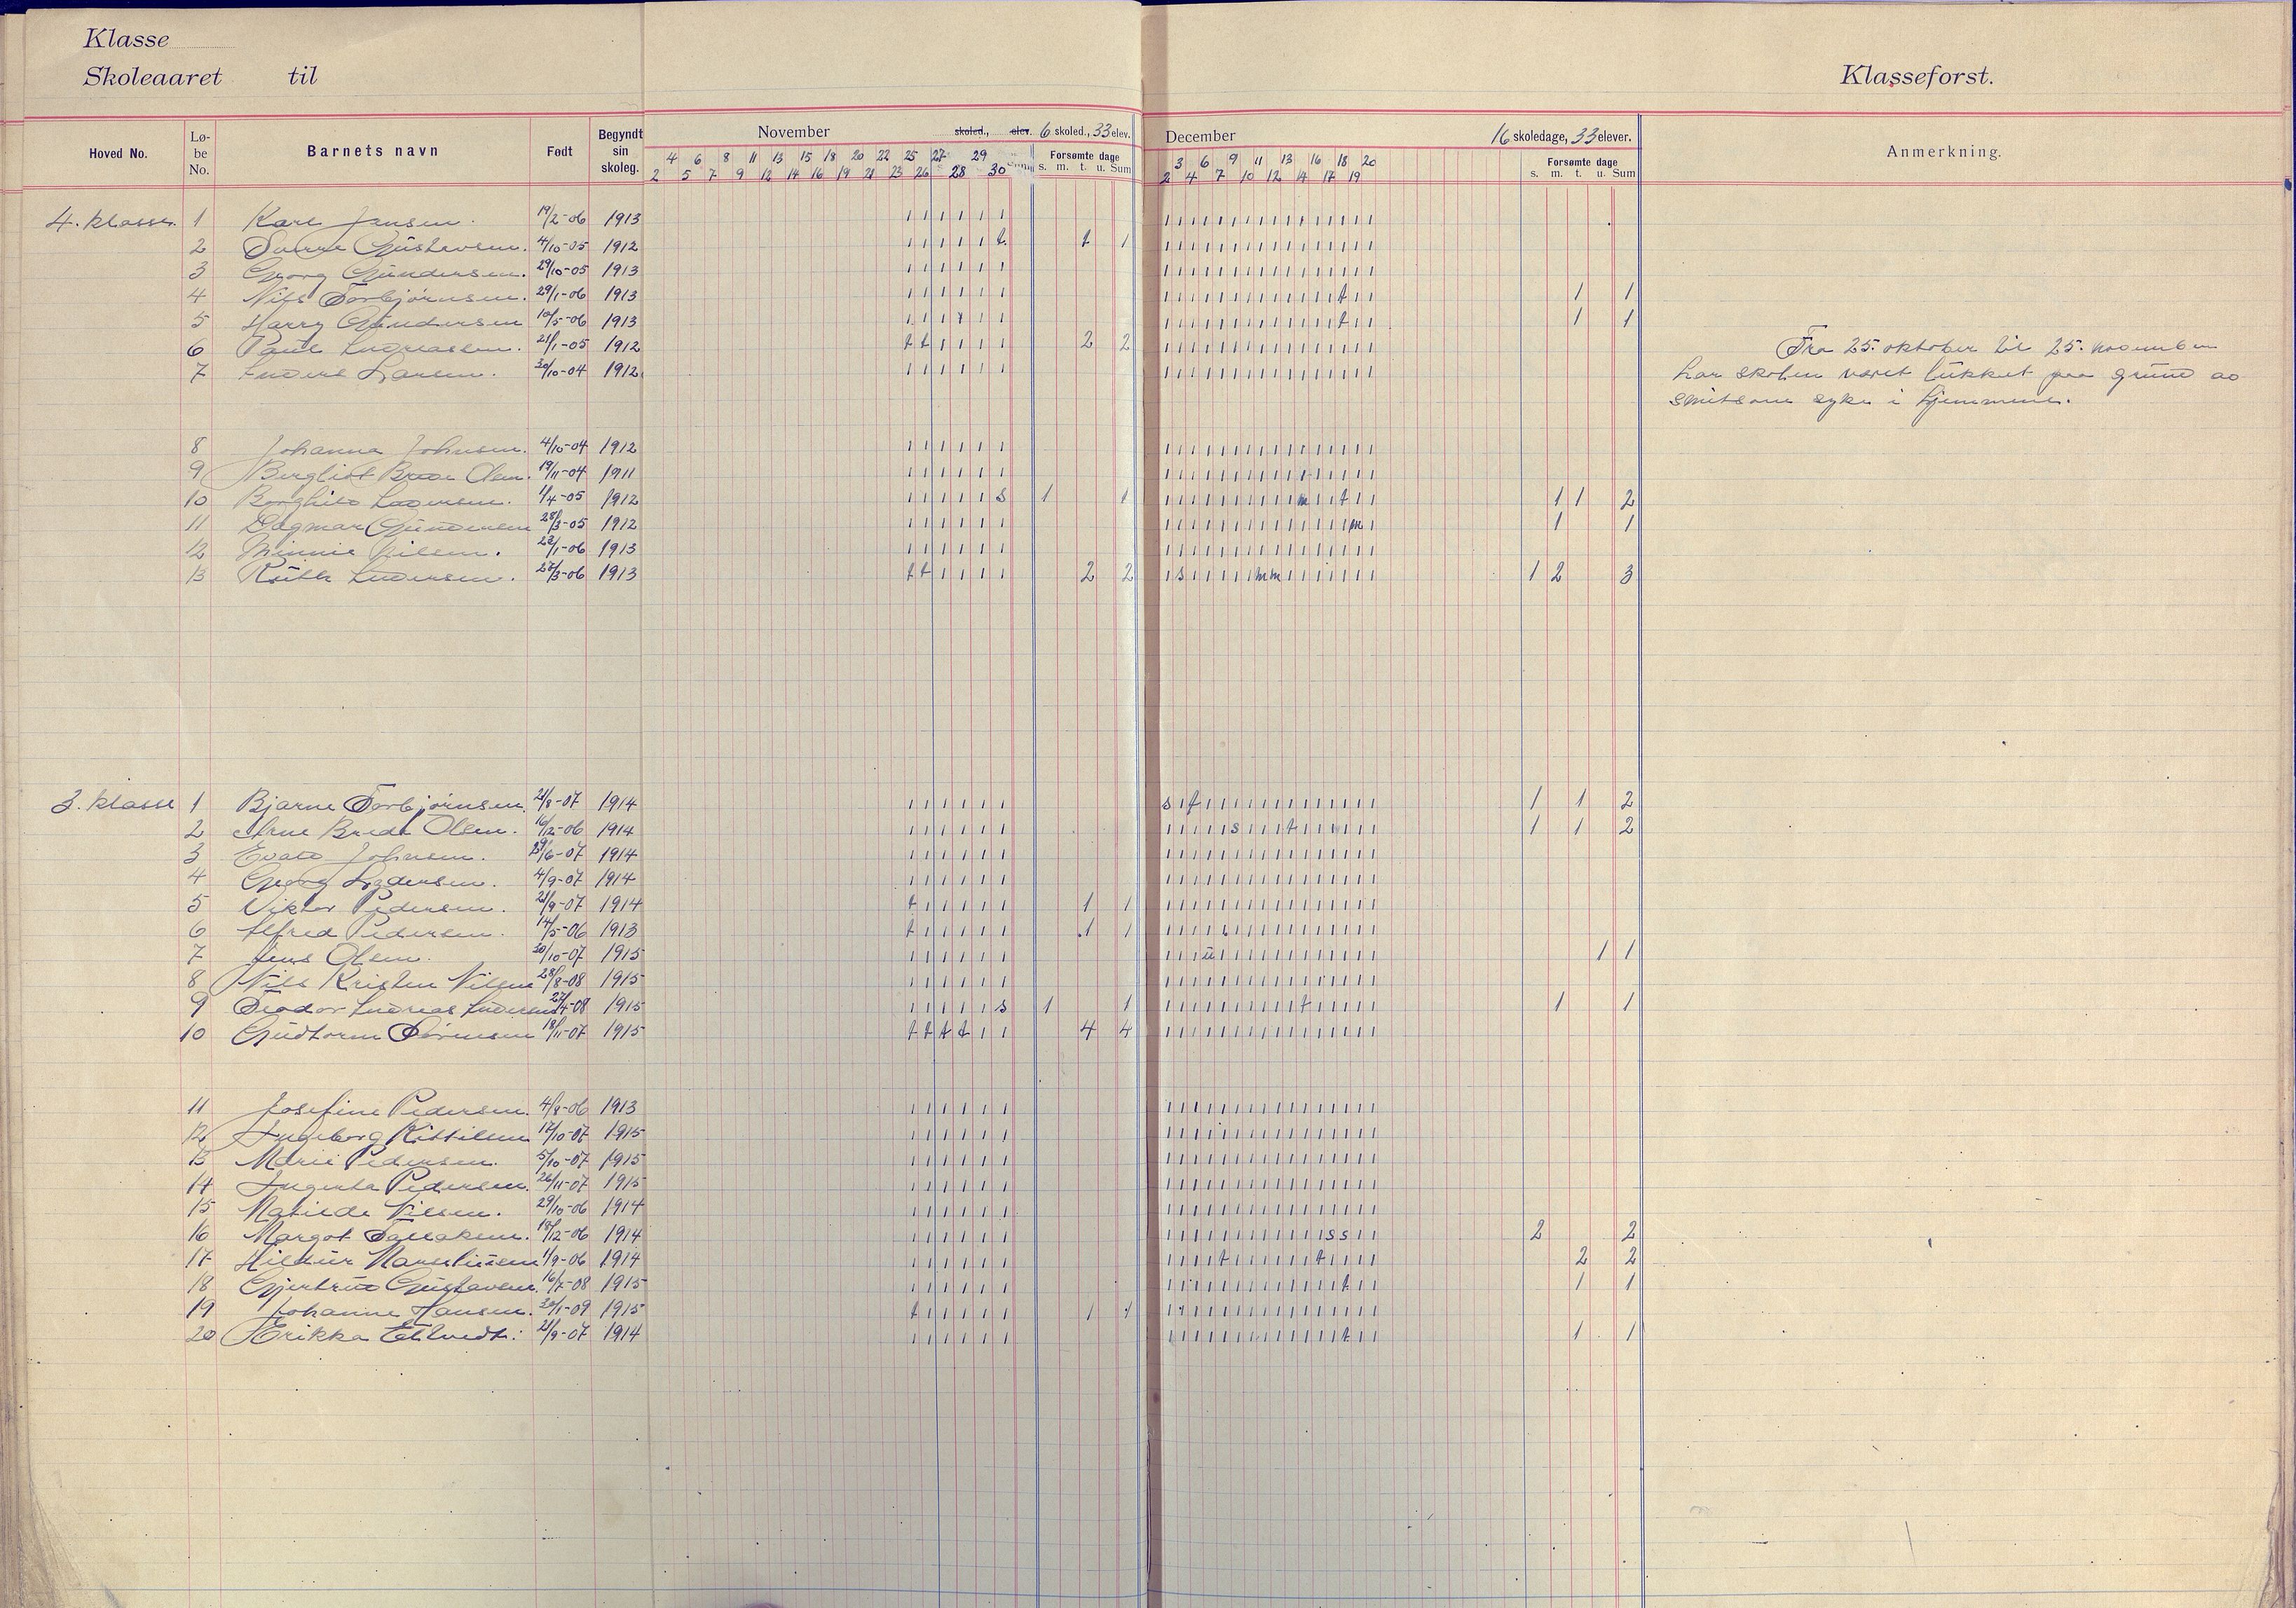 Klasse
Skoleaaret til
Klasseforst.
Hoved No. Lø-be No. Barnets navn Født Begyndt sin skoleg.
November skoled., elev. 6 skoled., 33 elev.
4 6 8 11 13 15 18 20 22 25 27 29
2 5 7 9 12 14 16 19 21 23 26 28 30
Forsømte dage
s. m. t. u. Sum
December 16 skoledage, 33 elever.
3 6 9 11 13 16 18 20
2 4 7 10 12 14 17 19
Forsømte dage
s. m. t. u. Sum
Anmerkning.
4. klasse. 1 Karl Jensen. 19/2-06 1913
2 Sverre Gustavsen. 4/10-05 1912 t t 1
3 Georg Gundersen. 29/10-05 1913
4 Nils Torbjørnsen. 29/1-06 1913 t 1 1
5 Harry Gundersen 10/5-06 1913 t 1 1
6 Paul Andreassen. 21/1-05 1912 t t 2 2
7 Anders Larsen. 30/10-04 1912
Fra 25. oktober til 25. november
har skolen været lukket paa grund av
smitsom syke i hjemmene.
8 Johanna Johnsen. 4/10-04 1912
9 Bergliot Brede Olsen. 19/11-04 1911
10 Borghild Andersen. 1/4-05 1912 s 1 1 m t 1 1 2
11 Dagmar Gundersen 28/3-05 1912 m 1 1
12 Minnie Nilsen. 22/1-06 1913
13 Ruth Andersen. 27/3-06 1913 t t 2 2 s m m 1 2 3
3. klasse 1 Bjarne Torbjørnsen. 21/8-07 1914 s t 1 1 2
2 Arne Brede Olsen. 16/12-06 1914 s t 1 1 2
3 Evald Johnsen. 29/6-07 1914
4 Georg Andersen. 4/9-07 1914
5 Viktor Pedersen. 21/9-07 1914 t 1 1
6 Alfred Pedersen. 14/5-06 1913 t 1 1
7 Jens Olsen. 30/10-07 1915 u 1 1
8 Nils Kristen Nilsen 28/8-08 1915
9 Teodor Andreas Andersen 27/4-08 1915 s 1 1 t 1 1
10 Gudtorm Sørensen 18/11-07 1915 t t t t 4 4
11 Josefine Pedersen. 4/8-06 1913
12 Ingeborg Kittilsen 17/10-07 1915
13 Marie Pedersen. 5/10-07 1915
14 Ingerta Pedersen. 26/11-07 1915
15 Matilde Nilsen. 29/10-06 1914
16 Margot Tallaksen. 18/12-06 1914 s s 2 2
17 Hildur Marseliussen 1/9-06 1914 t t 2 2
18 Gjertrud Gustavsen. 16/7-08 1915 t 1 1
19 Johanne Hansen. 30/1-09 1915 t 1 1
20 Erikka 21/9-07 1914 t 1 1